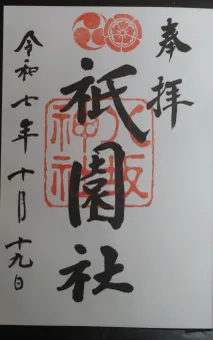 奉拝
八坂神社
祇園社
令和七年十月十九日